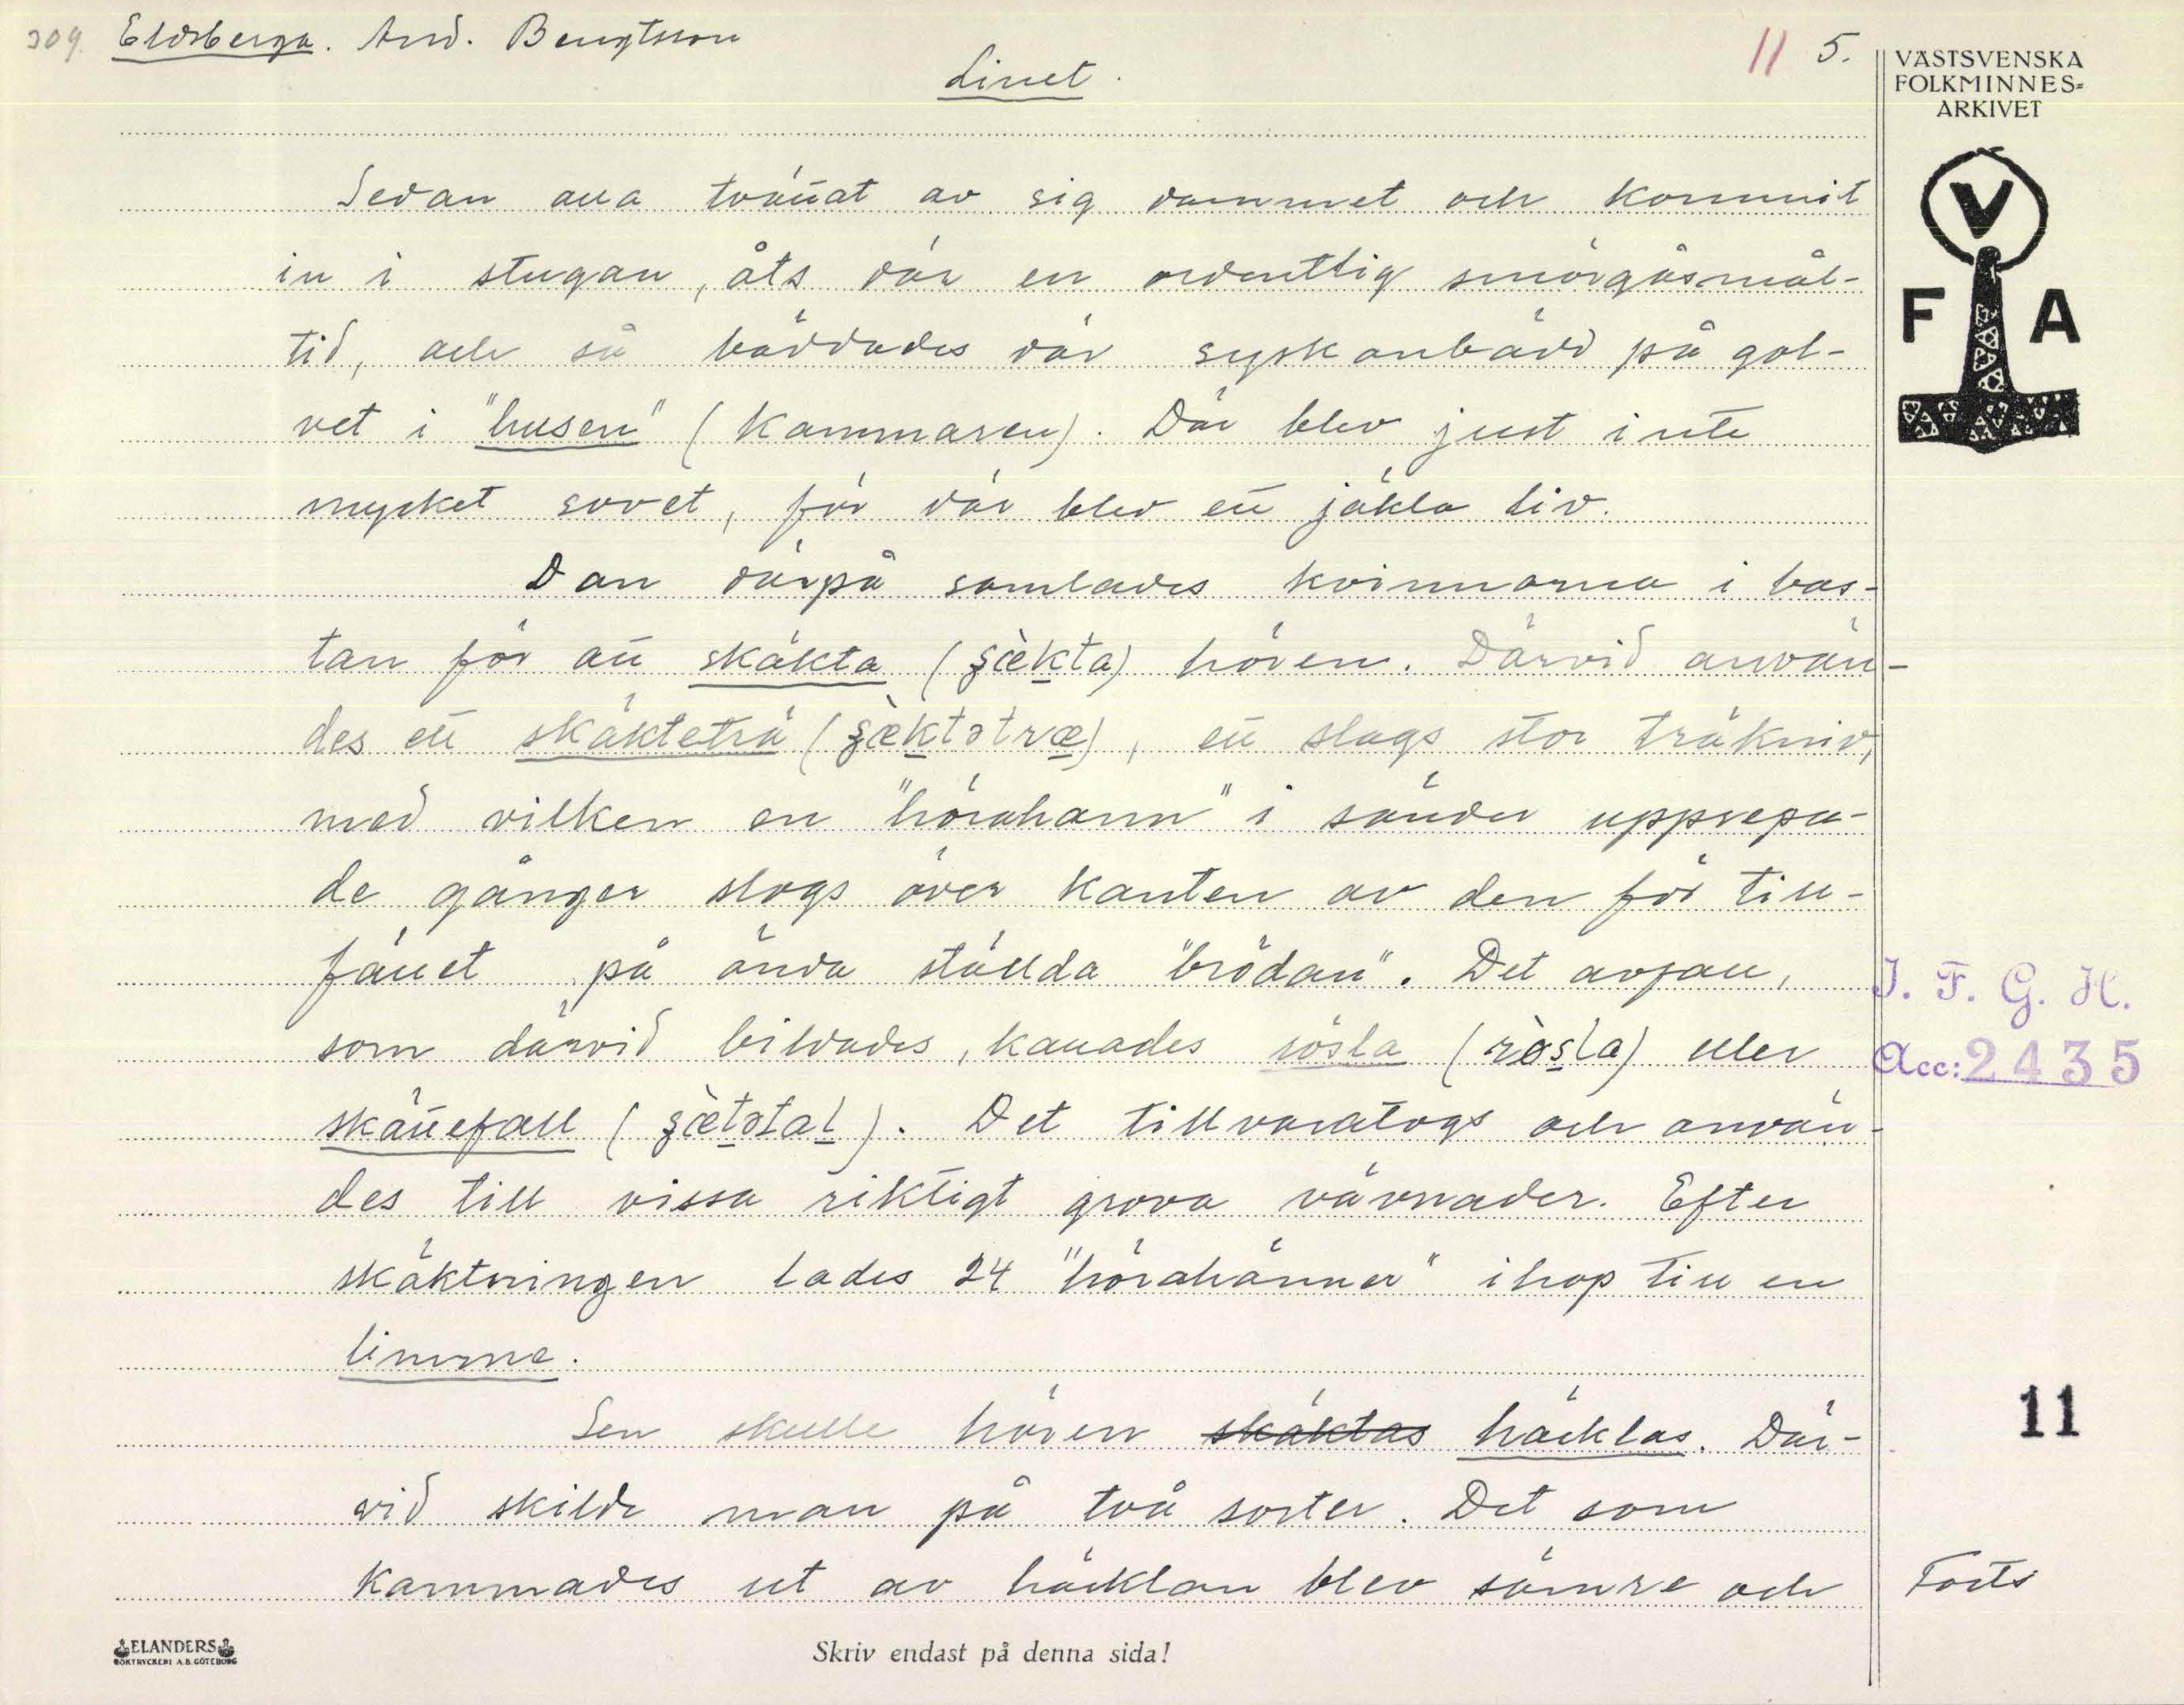 309. Eldsberga. And. Bengtsson
11 5.
Linet.
VÄSTSVENSKA
FOLKMINNES=
ARKIVET
V
F A
Sedan alla tvättat av sig dammet och kommit
in i stugan, åts där en ordentlig smörgåsmål-
tid, och så bäddades där syskonbädd på gol-
vet i "husen" (kammaren). Där blev just inte
mycket sovet, för där blev ett jäkla liv.
Dan därpå samlades kvinnorna i bas-
tan för att skäkta (ʂækta) hören. Därvid använ-
des ett skäkteträ (ʂæktətræ), ett slags stor träkniv,
med vilken en "hörahann" i sänder upprepa-
de gånger slogs över kanten av den för till-
fället på ända ställda "brödan". Det avfall,
som därvid bildades, kallades rösla (ròsla) eller
skättefall ( ). Det tillvaratogs och använ-
des till vissa riktigt grova vävnader. Efter
skäktningen lades 24 "hörahänner" ihop till en
limme.
Sen skulle hören skäktas häcklas. Där-
vid skilde man på två sorter. Det som
kammades ut av häcklan blev sämre och
Forts
J. F. G. H.
Acc: 2435
11
ELANDERS
BOKTRYCKERI A.B. GÖTEBORG
Skriv endast på denna sida!